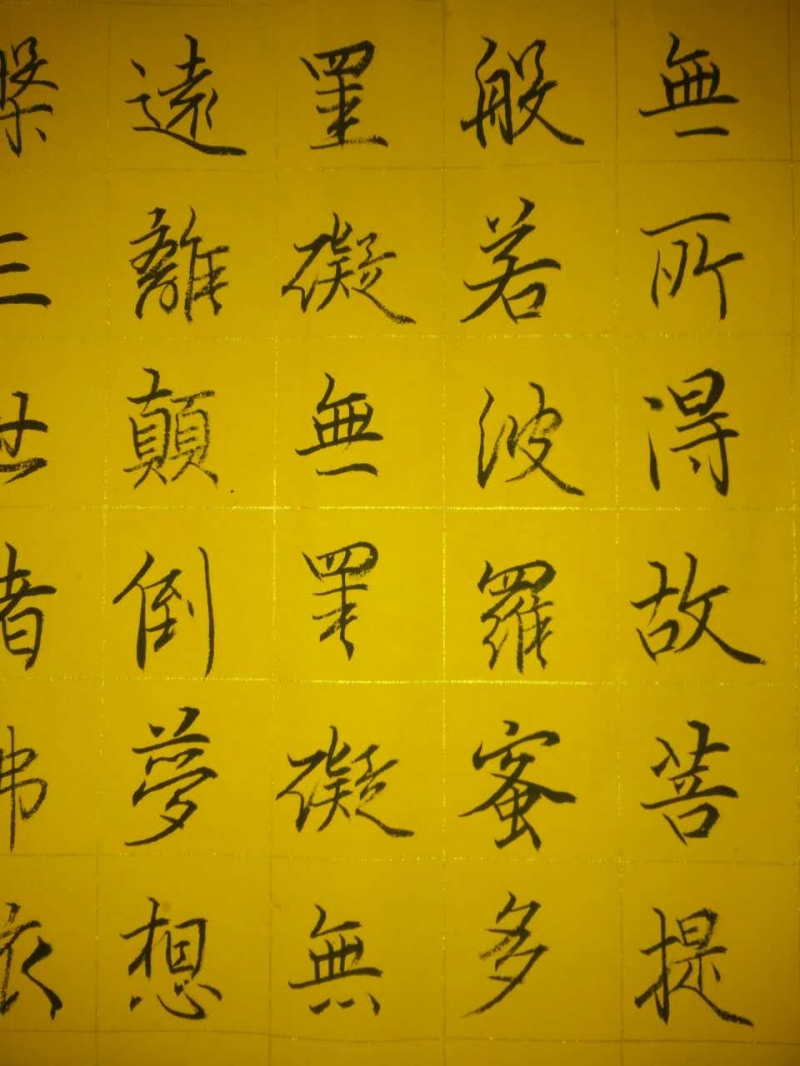 無所得故菩提
般若波羅蜜多
罣礙無罣礙無
遠離顛倒夢想
槃三世者佛依